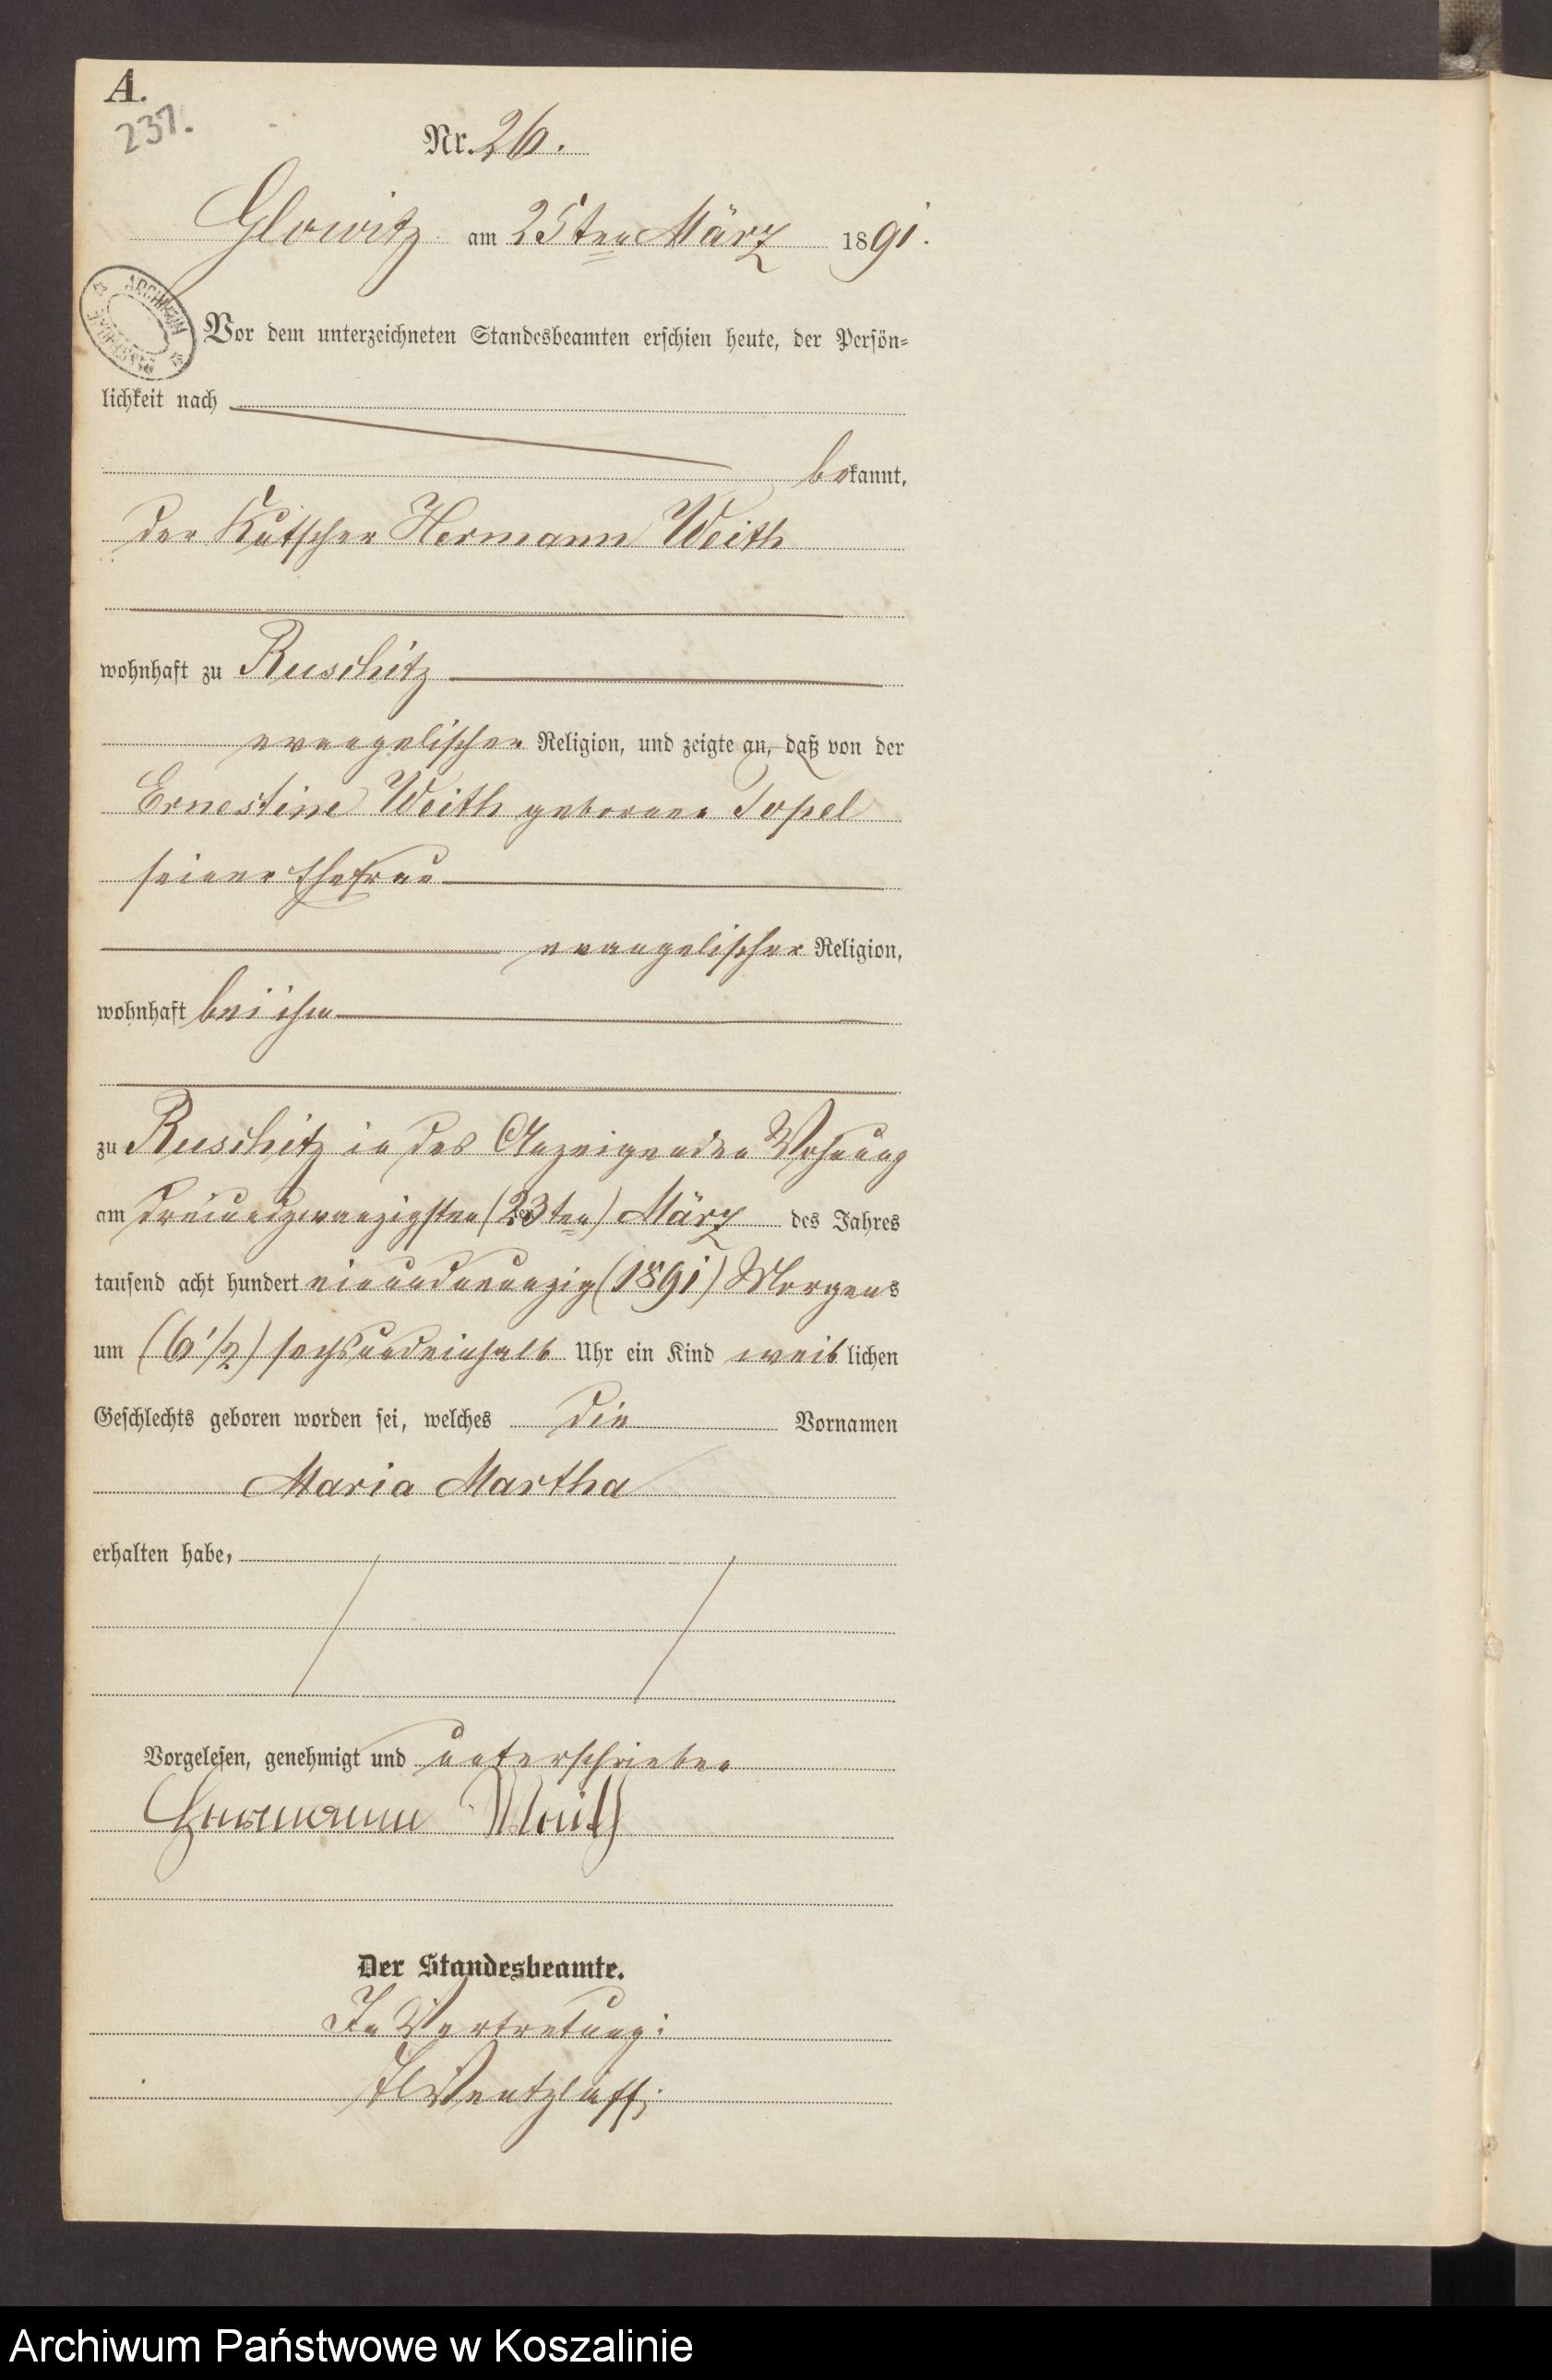 A.
237.
Nr. 26.
Glowitz am 25ten März 1891.
ARCHIWUM
Vor dem unterzeichneten Standesbeamten erschien heute, der Persön-
lichkeit nach
bekannt,
der Kutscher Hermann Weith
wohnhaft zu Ruschitz
evangelischer Religion, und zeigte an, daß von der
Ernestine Weith geborene Topel
seiner Ehefrau
evangelischer Religion,
wohnhaft bei ihm
zu Ruschitz in des Anzeigenden Wohnung
am dreiundzwanzigsten (23ten) März des Jahres
tausend acht hundert einundneunzig (1891) Morgens
um (6 1/2) sechsundeinhalb Uhr ein Kind weiblichen
Geschlechts geboren worden sei, welches die Vornamen
Maria Martha
erhalten habe,
Vorgelesen, genehmigt und unterschrieben
Hermann Weith
Der Standesbeamte.
In Vertretung:
Wentzlaff.
Archiwum Państwowe w Koszalinie